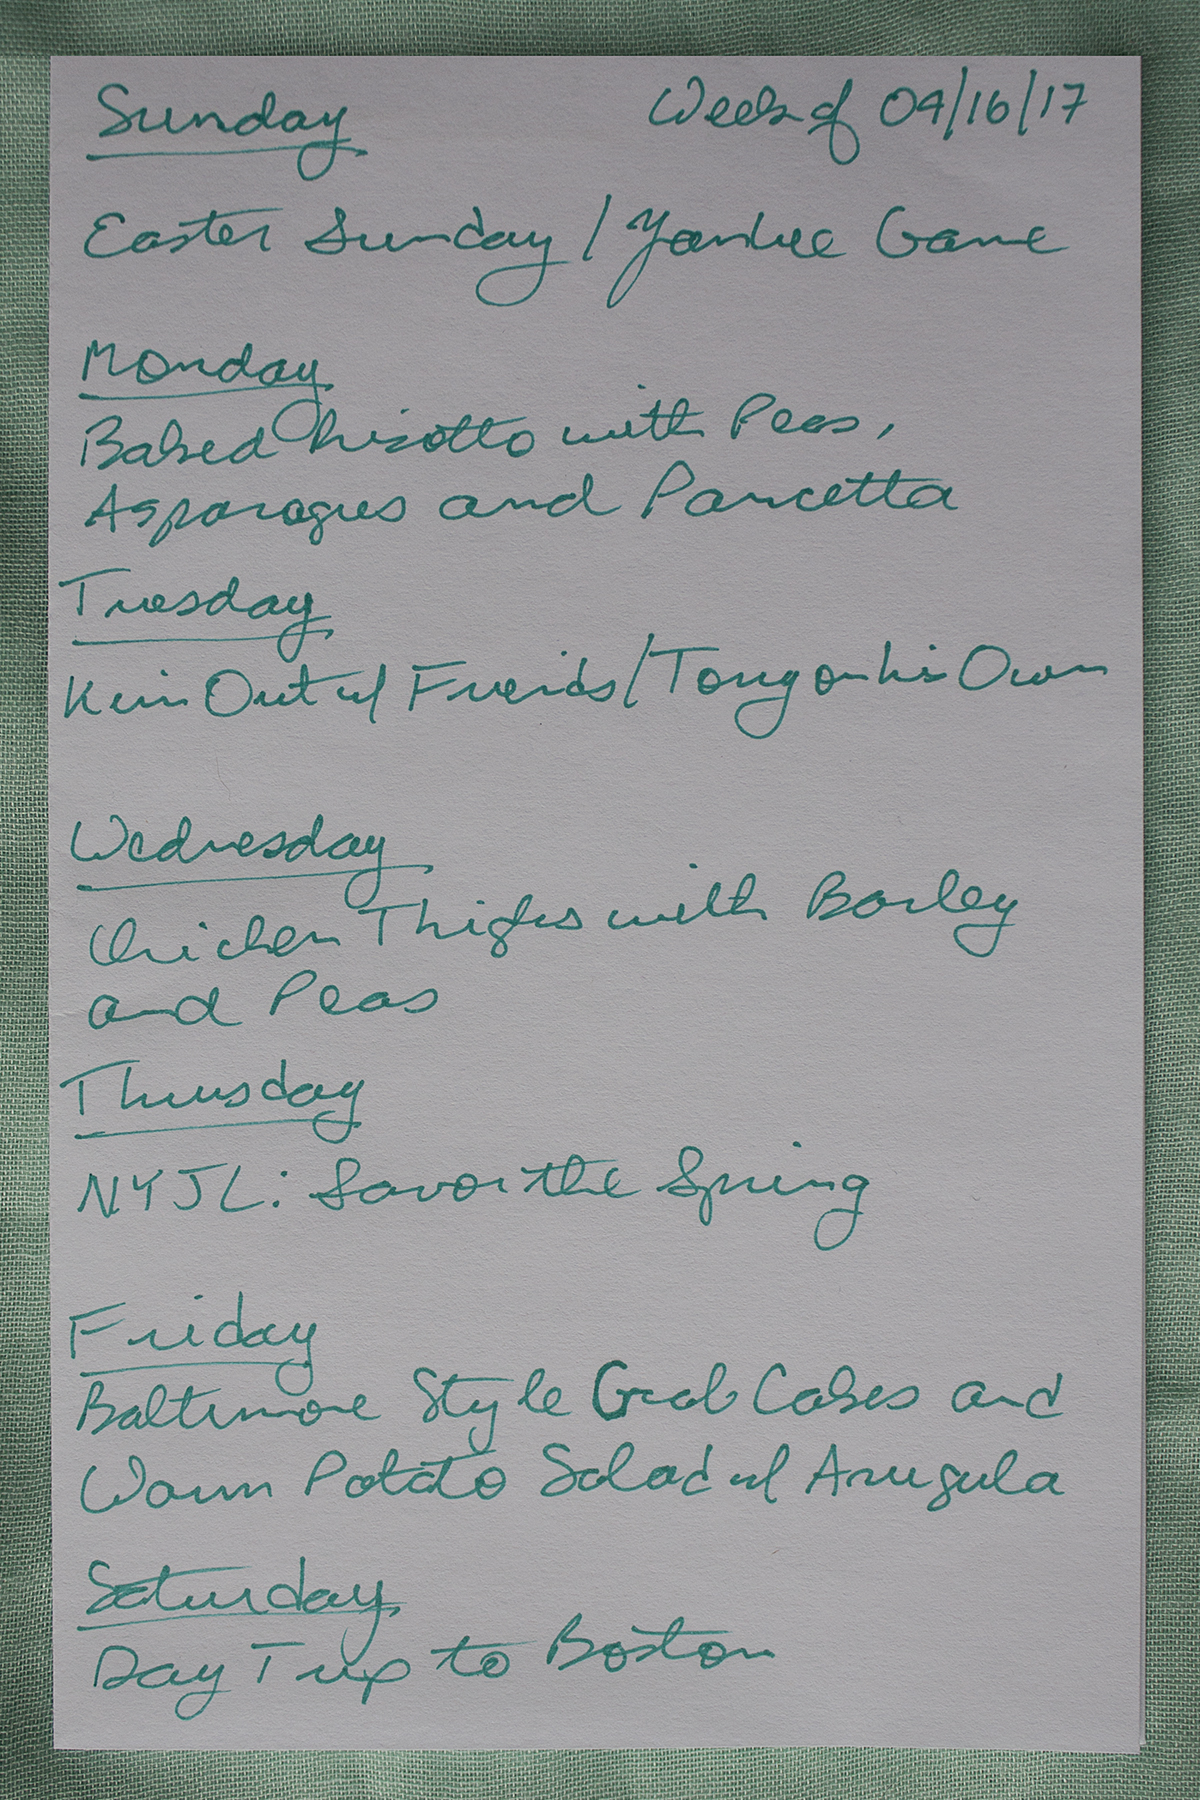 Sunday Week of 04/16/17
Easter Sunday / Yankee Game
Monday
Baked Risotto with Peas,
Asparagus and Pancetta
Tuesday
Kim Out w/ Friends / Tony on his Own
Wednesday
Chicken Thighs with Barley
and Peas
Thursday
NYJL: Savor the Spring
Friday
Baltimore Style Crab Cakes and
Warm Potato Salad w/ Arugula
Saturday
Day Trip to Boston